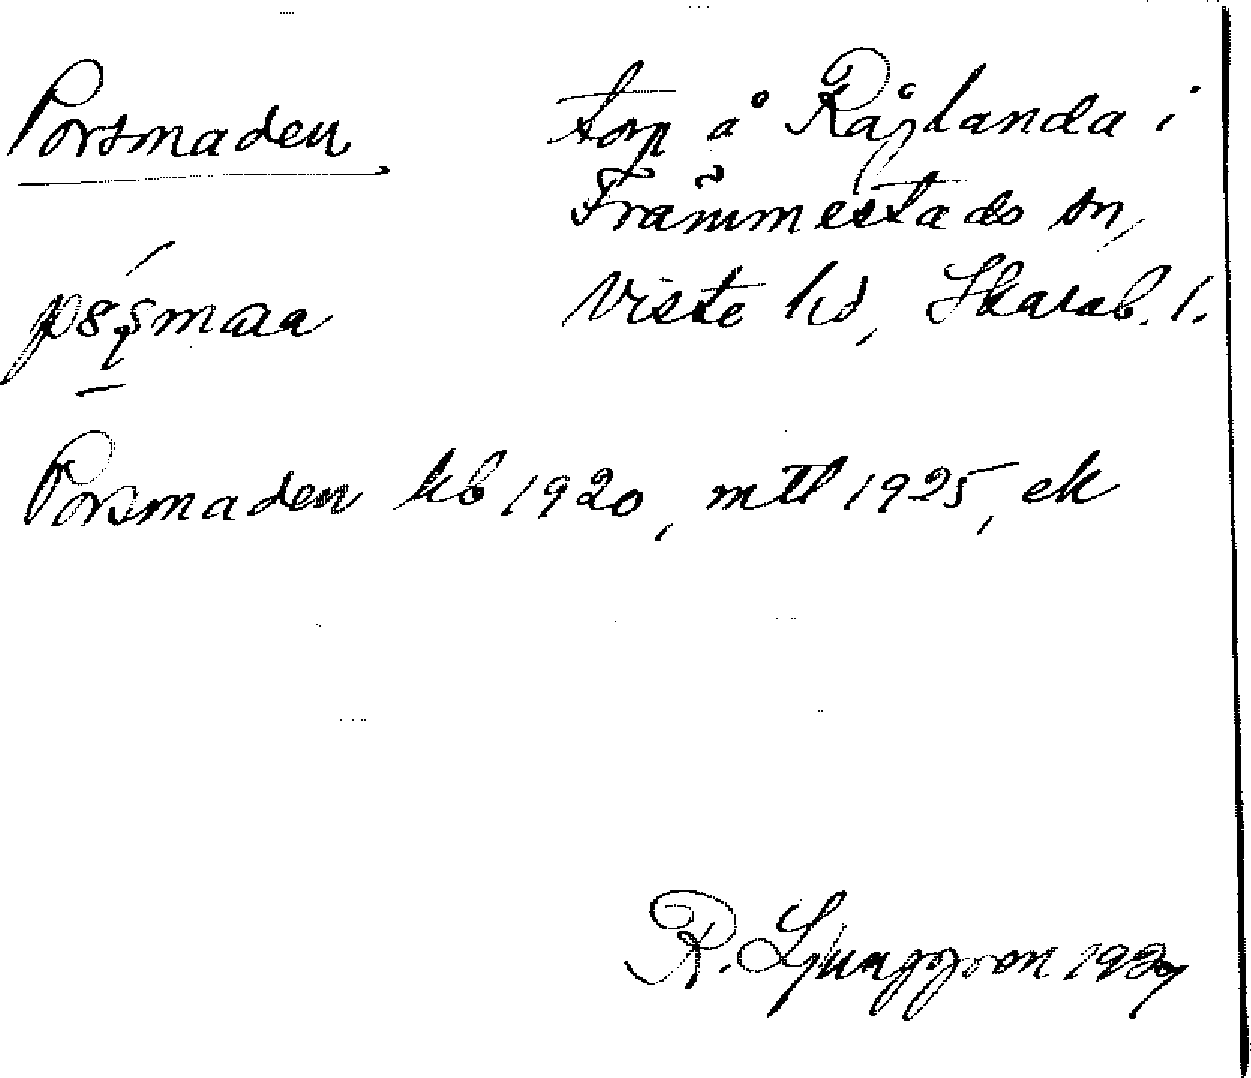 Porsmaden
torp å Råglanda i
Främmestads sn,
Viste hd, Skarab. l.
Porsmaden kb 1920, mtl 1925, ek
R. Ljunggren 1927